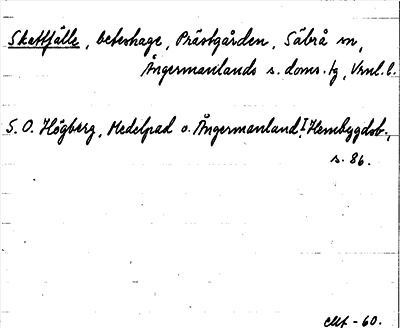 Skattfälle, beteshage, Prästgården, Säbrå sn,
Ångermanlands s. doms. tg, Vrnl. l.
S. O. Högberg, Medelpad o. Ångermanland, I Hembygdsb.,
s. 86.
-60.